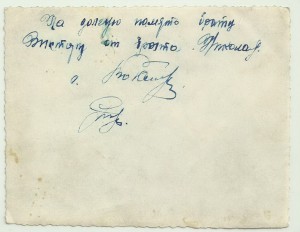 На долгую память брату
Виктору от брата Николая
г.